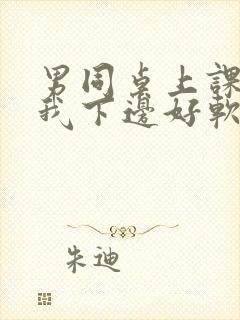 男同桌上課
我下邊好軟
朱迪